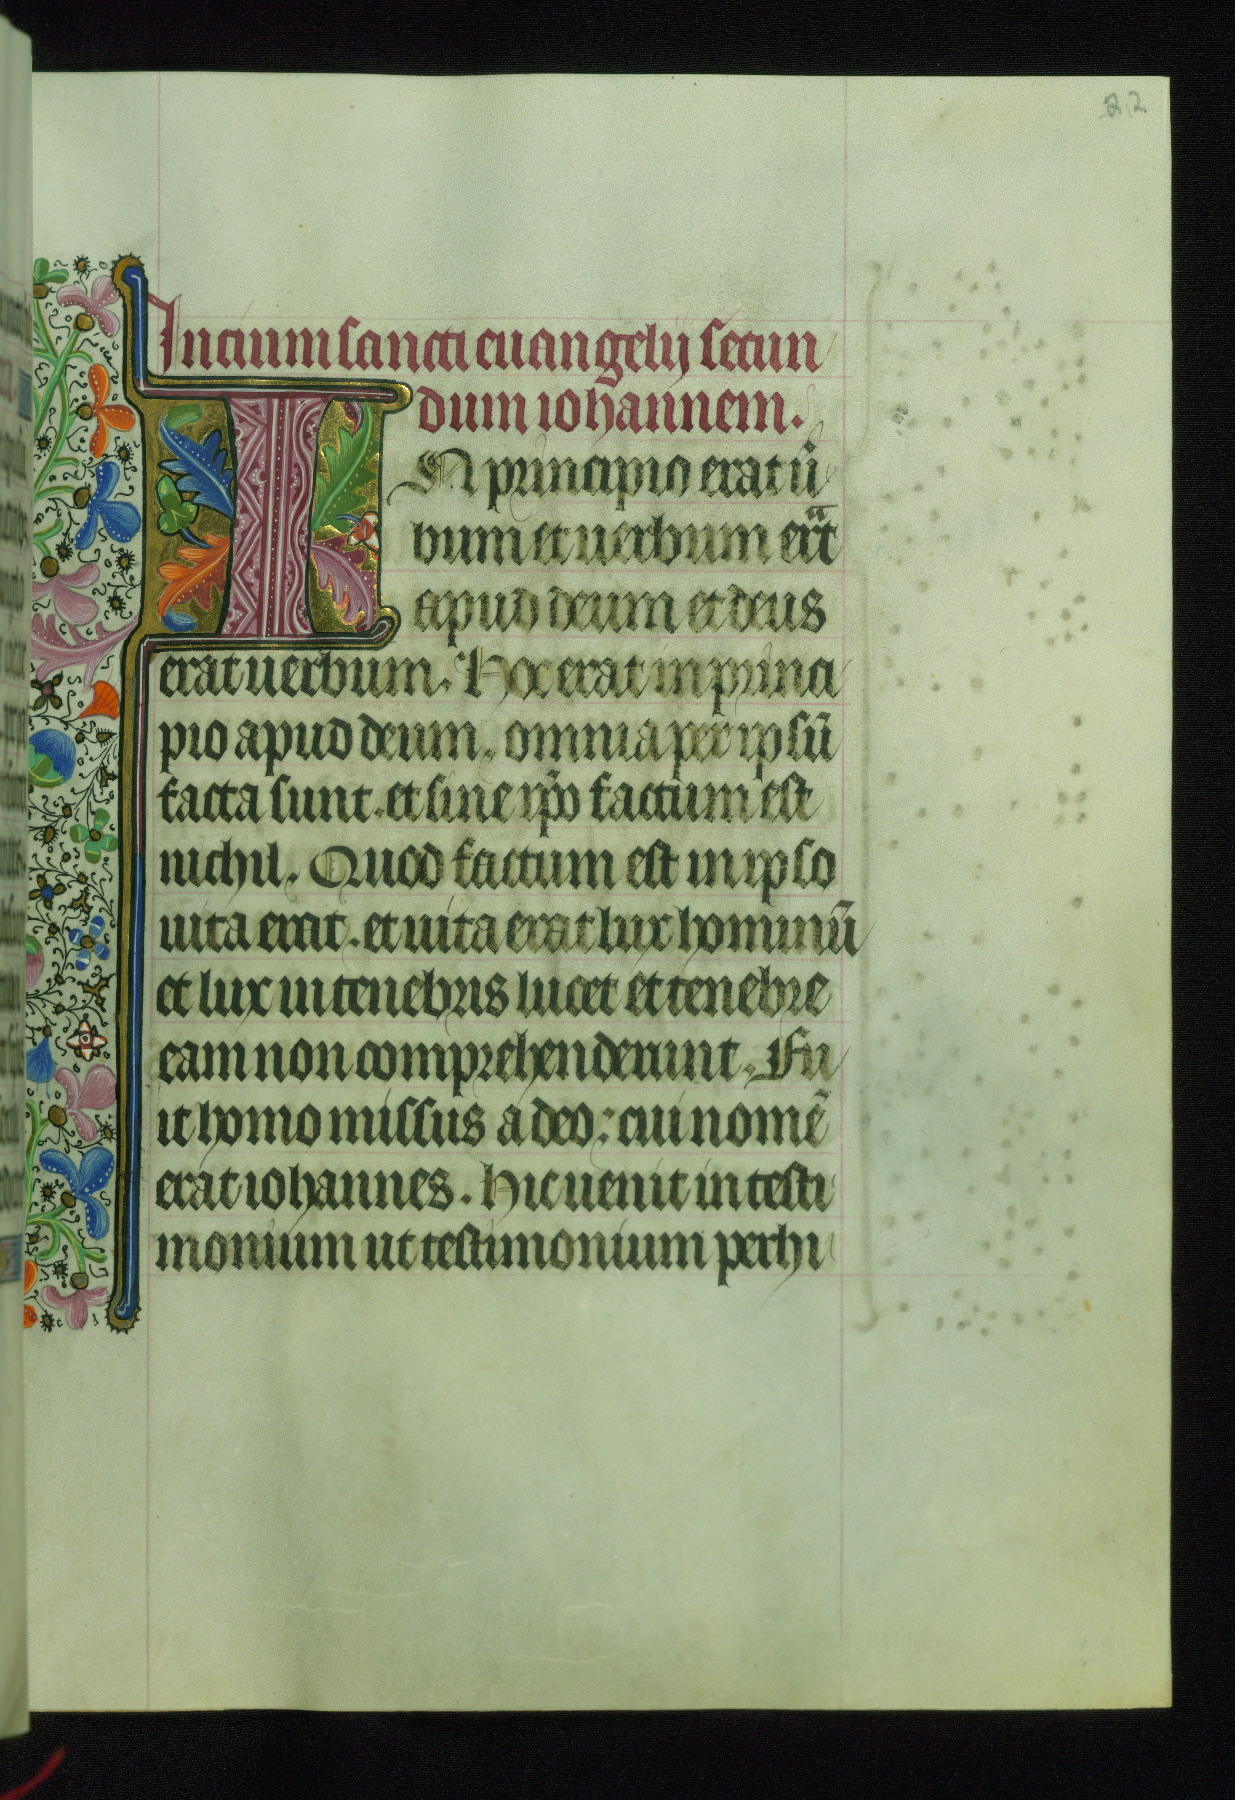 22
Inicium sancti euangelij secun
dum iohannem.
IN principio erat ũ
bum et uerbum erãt
apud deum et deus
erat uerbum. Hoc erat in princi
pio apud deum. omnia per ipsũ
facta sunt. et sine ip̃o factum est
nichil. Quod factum est in ipso
uita erat. et uita erat lux hominũ
et lux in tenebris lucet et tenebre
eam non comprehenderunt. Fu
it homo missus a deo: cui nomẽ
erat iohannes. Hic uenit in testi
monium ut testimonium perhi